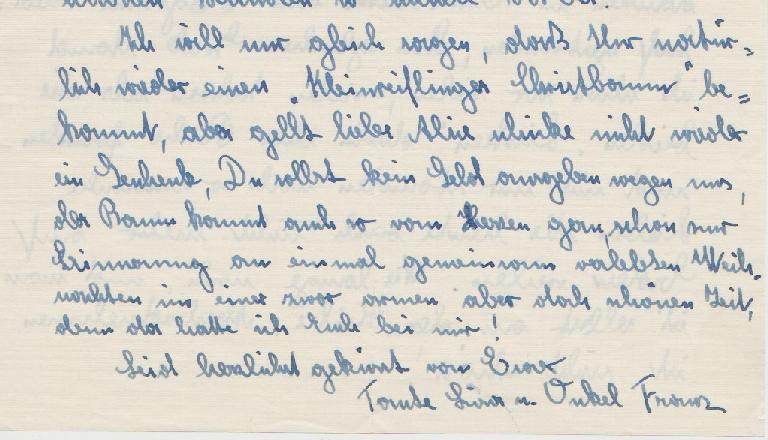 Ich will nur gleich sagen, daß Ihr natür-
lich wieder einen "Kleinreiflinger Christbaum" be=
kommt, aber gellt lieber schicke nicht wieder
ein Geschenk, Du sollst kein Geld ausgeben wegen uns,
der Baum kommt auch so vom Herzen gern, schon zur
Erinnerung an einmal gemeinsam verlebten Weih-
nachten in einer zwar armen, aber doch schönen Zeit,
denn da hatte ich Euch bei mir!
Seid herzlichst geküsst von Eurer
Tante u. Onkel Franz